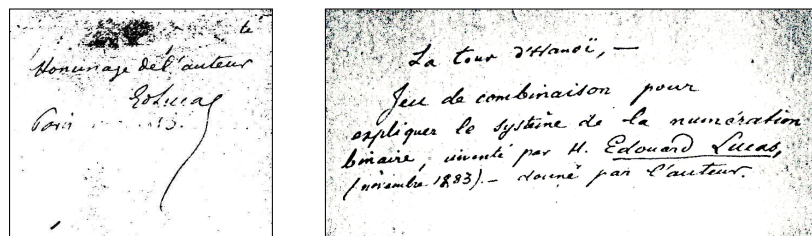 Hommage de l'auteur
EdLucas
Paris
La tour d'Hanoï, —
Jeu de combinaison pour
expliquer le système de la numération
binaire, inventé par M. Edouard Lucas,
(novembre 1883). — donné par l'auteur.